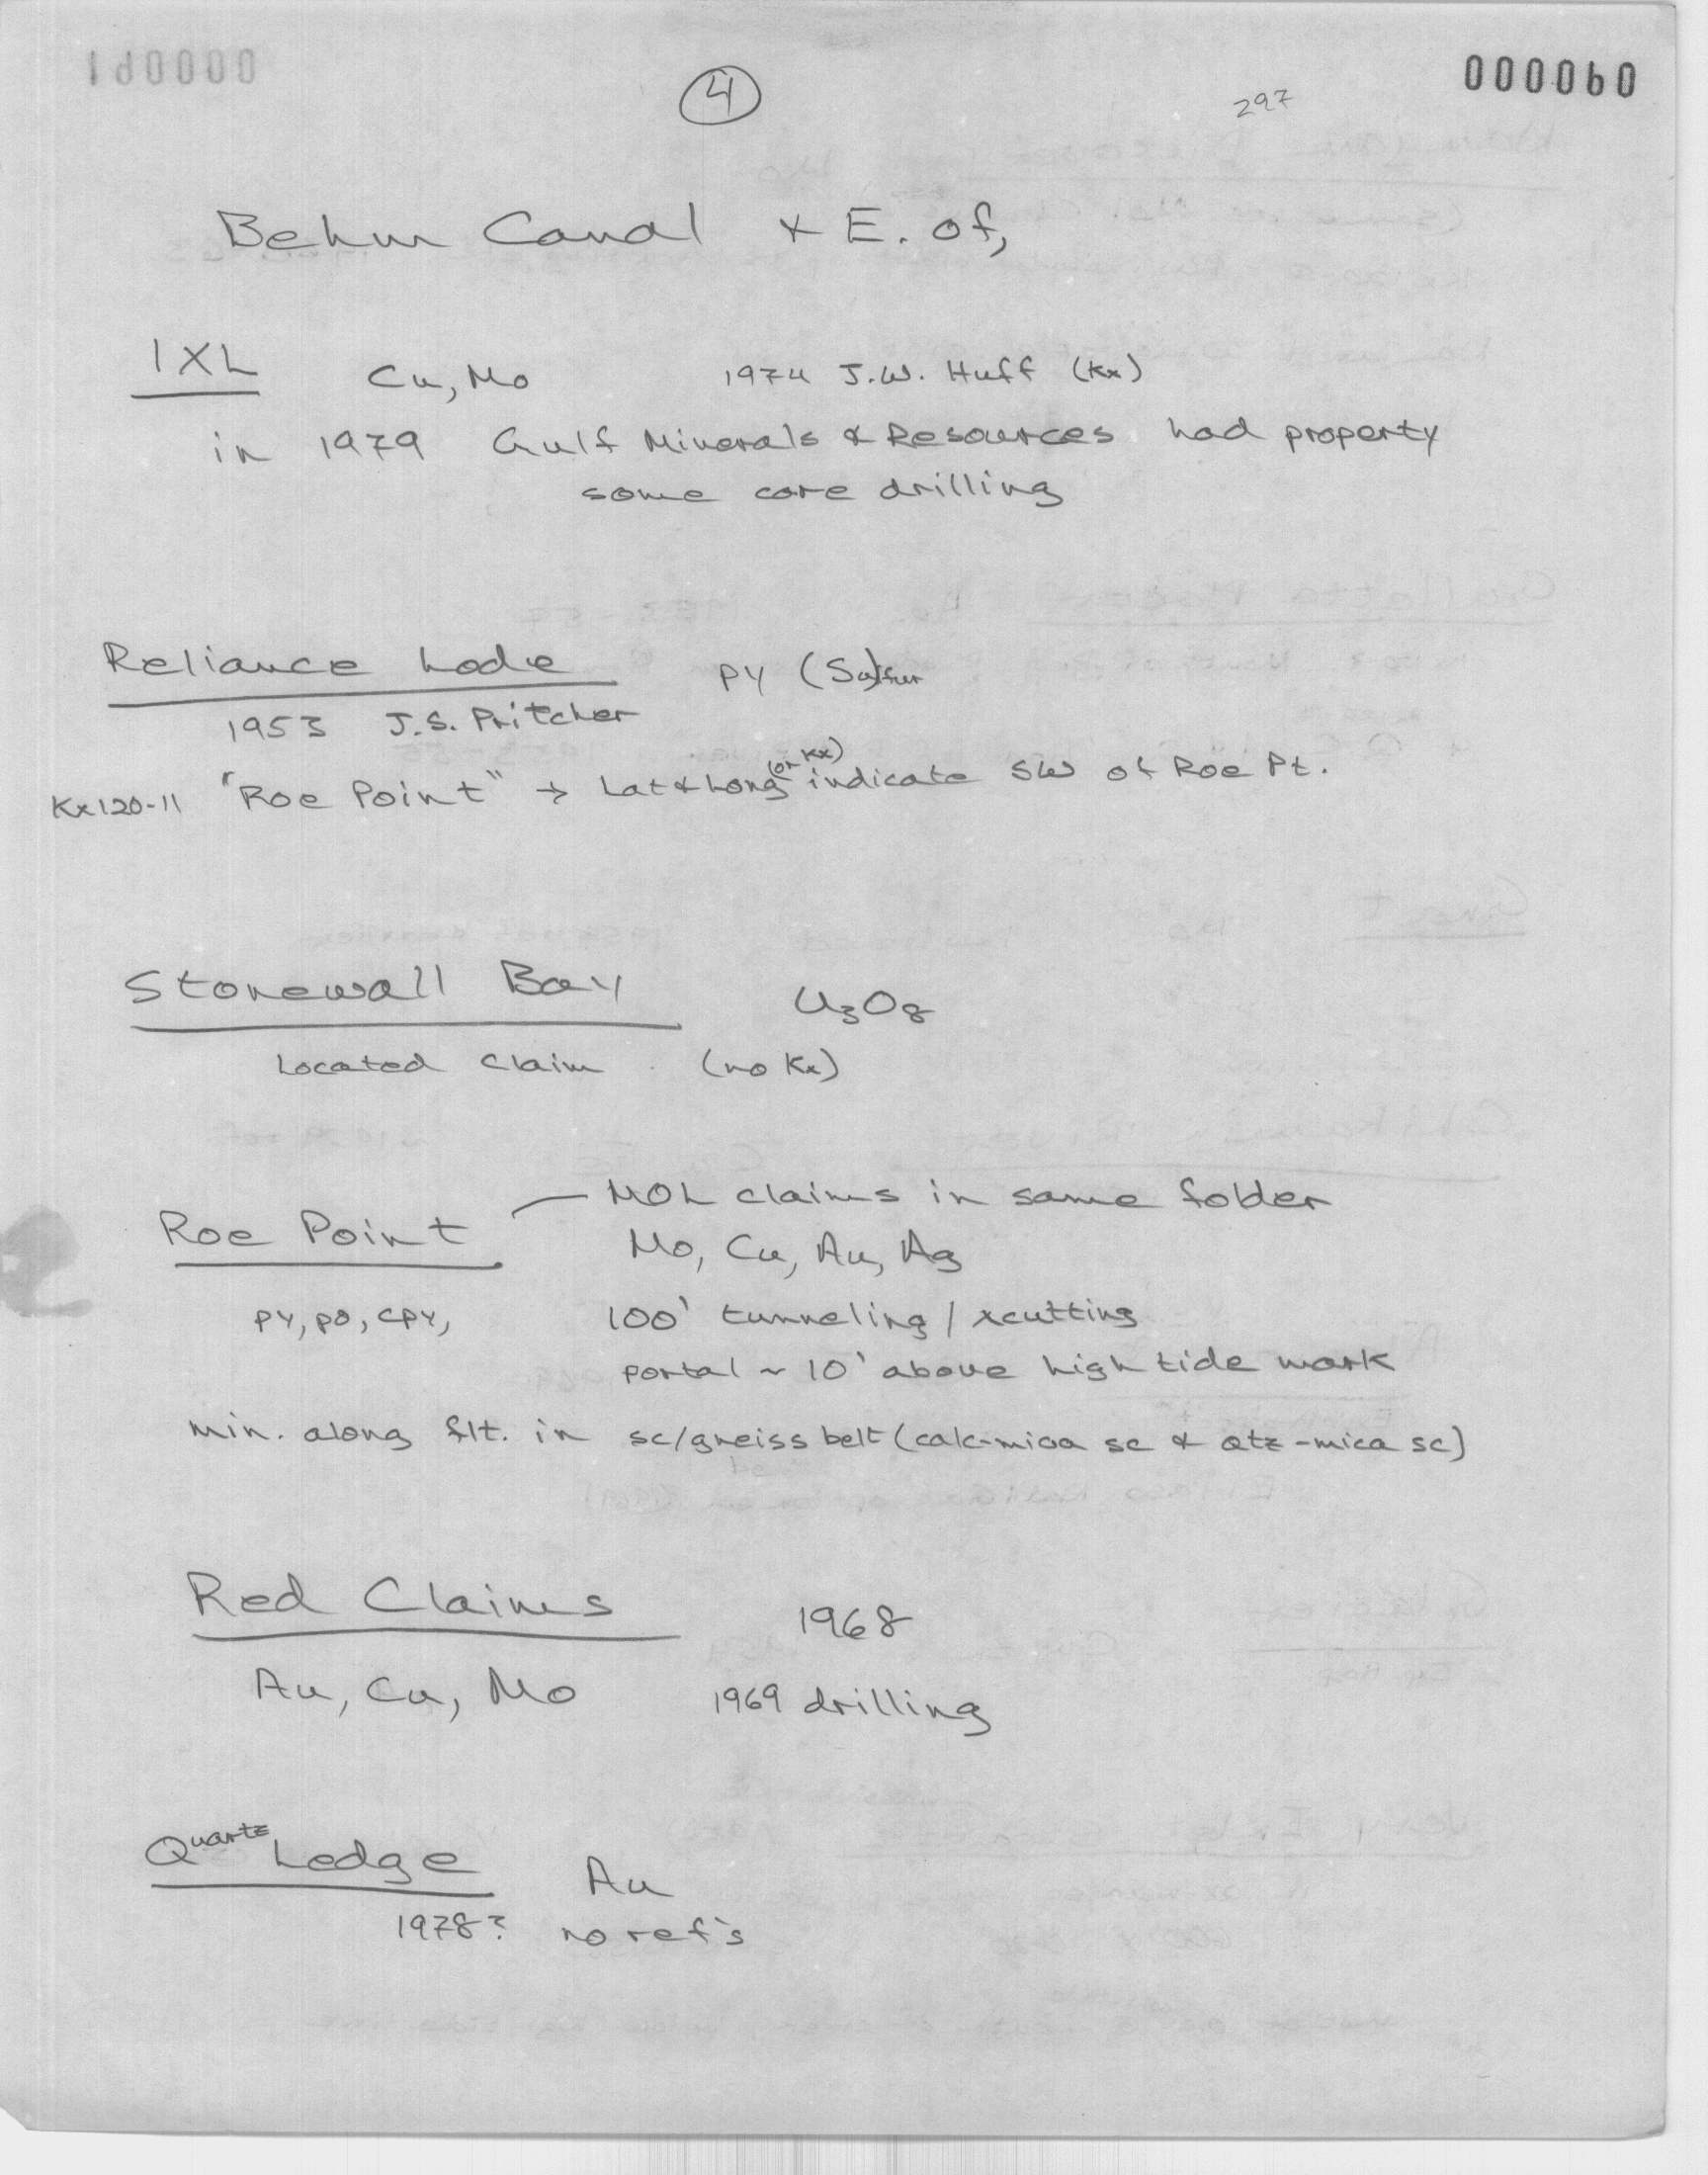 000060
4
297
Behm Canal & E. of,
IXL Cu, Mo 1974 J.W. Huff (Kx)
in 1979 Gulf Minerals & Resources had property
some core drilling
Reliance Lode PY (Sulfur
1953 J.S. Pritcher
Kx120-11 "Roe Point" → Lat & Long (on Kx) indicate SW of Roe Pt.
Stonewall Bay U3O8
Located Claim (no Kx)
Roe Point — MOL claims in same folder
Mo, Cu, Au, Ag
PY, po, cpy, 100' tunneling / xcutting
portal ~ 10' above high tide mark
min. along flt. in sc/gneiss belt (calc-mica sc & qtz-mica sc)
Red Claims 1968
Au, Cu, Mo 1969 drilling
Quartz Ledge Au
1978? no ref's